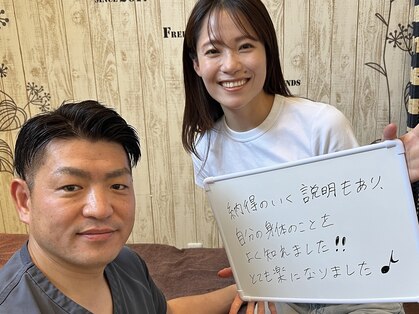 SINCE 2017
納得のいく説明もあり、
自分の身体のことを
よく知れました!!
とても楽になりました♪